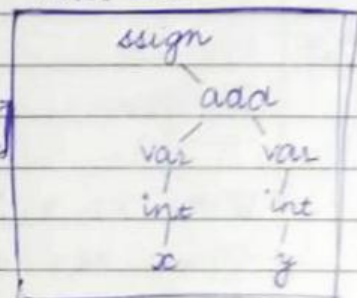 ssign
add
var var
int int
x y